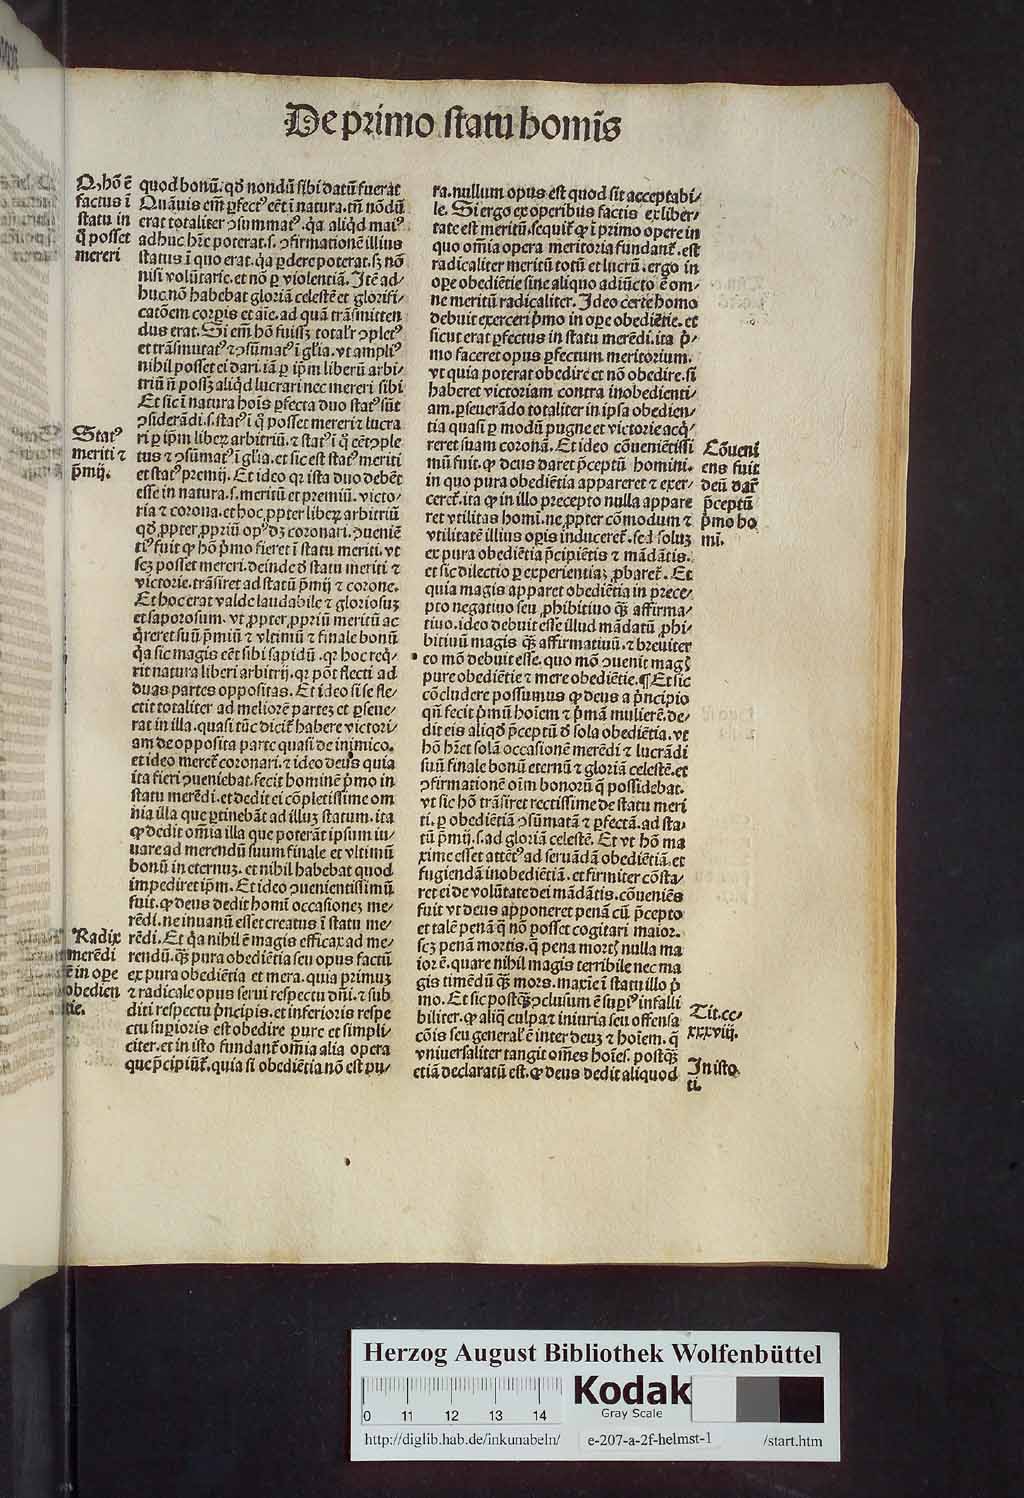 De primo statu homĩs
Q, hõ ẽ
factus ĩ
statu in
q̃ posset
mereri
quod bonũ. qđ nondũ sibi datũ fuerat
Quãuis em̃ ꝑfectꝰ eẽt ĩ natura. tñ nõdũ
erat totaliter ↄsummatꝰ. q̃a aliq̃d maiꝰ
adhuc hr̃e poterat. s. ↄfirmationẽ illius
status ĩ quo erat. q̃a ꝑdere poterat. sꝫ nõ
nisi volũtarie. et nõ ꝑ violentiã. Jtẽ ad⸗
huc nõ habebat gloriã celestẽ et glorifi⸗
catõem corꝑis et aĩe. ad quã trãsmitten
dus erat. Si em̃ hõ fuissꝫ totalr̃ ↄpletꝰ
et trãsmutatꝰ ⁊ ↄsũmatꝰ ĩ gl̃ia. vt ampliꝰ
nihil posset ei dari. iã ꝑ ip̃m liberũ arbi⸗
triũ ñ possꝫ aliq̃d lucrari nec mereri sibi
Et sic ĩ natura hoĩs ꝑfecta duo statꝰ sũt
ↄsiderãdi. s. statꝰ ĩ q̃ posset mereri ⁊ lucra
ri ꝑ ip̃m libeꝝ arbitriũ. ⁊ statꝰ ĩ q̃ eẽt ↄple
tus ⁊ ↄsũmatꝰ ĩ gl̃ia. et sic est statꝰ meriti
et statꝰ premij. Et ideo qr̃ ista duo debẽt
esse in natura. s. meritũ et premiũ. victo⸗
ria ⁊ corona. et hoc ꝓpter libeꝝ arbitriũ
qđ ꝓpter ꝓpriũ opꝰ dꝫ coronari. ↄueniẽ
tiꝰ fuit ꝙ hõ p̃mo fieret ĩ statu meriti. vt
scꝫ posset mereri. deinde đ statu meriti ⁊
victorie. trãsiret ad statũ p̃mij ⁊ corone.
Et hoc erat valde laudabile ⁊ gloriosuꝫ
et saporosum. vt ꝓpter ꝓpriũ meritũ ac
q̃reret suũ p̃miũ ⁊ vltimũ ⁊ finale bonũ
q̃a sic magis eẽt sibi sapidũ. qr̃ hoc req̃⸗
rit natura liberi arbitrij. qr̃ põt flecti ad
duas partes oppositas. Et ideo si se fle⸗
ctit totaliter ad meliorẽ parteꝫ et ꝑseue⸗
rat in illa. quasi tũc dicit᷑ habere victori⸗
am de opposita parte quasi de inimico.
et ideo meret᷑ coronari. ⁊ ideo deus quia
ita fieri ↄueniebat. fecit hominẽ p̃mo in
statu merẽdi. et dedit ei cõpletissime om
nia illa que ꝑtinebãt ad illuꝫ statum. ita
ꝙ dedit om̃ia illa que poterãt ipsum iu⸗
uare ad merendũ suum finale et vltimũ
bonũ in eternuꝫ. et nihil habebat quod
impediret ip̃m. Et ideo ↄuenientissimũ
fuit. ꝙ deus dedit homĩ occasioneꝫ me⸗
rẽdi. ne inuanũ esset creatus ĩ statu me⸗
rẽdi. Et q̃a nihil ẽ magis efficax ad me⸗
rendũ. qꝫ̃ pura obediẽtia seu opus factũ
ex pura obediẽtia et mera. quia primuꝫ
⁊ radicale opus serui respectu dñi. ⁊ sub
diti respectu p̃ncipis. et inferioris respe
ctu suꝑioris est obedire pure et simpli⸗
citer. et in isto fundant᷑ om̃ia alia opera
que p̃cipiũt᷑. quia si obediẽtia nõ est pu⸗
Statꝰ
meriti ⁊
p̃mij.
Radix
merẽdi
ẽ in oꝑe
obedien
tie.
ra. nullum opus est quod sit acceptabi⸗
le. Si ergo ex operibus factis ex liber⸗
tate est meritũ. sequit᷑ ꝙ ĩ primo opere in
quo om̃ia opera meritoria fundant᷑. est
radicaliter meritũ totũ et lucrũ. ergo in
oꝑe obediẽtie sine aliquo adiũcto ẽ om⸗
ne meritũ radicaliter. Jdeo certe homo
debuit exerceri p̃mo in oꝑe obediẽtie. et
sicut erat ꝑfectus in statu merẽdi. ita p̃⸗
mo faceret opus ꝑfectum meritorium.
vt quia poterat obedire et nõ obedire. si
haberet victoriam contra inobedienti⸗
am. ꝑseuerãdo totaliter in ipsa obedien⸗
tia quasi ꝑ modũ pugne et victorie acq̃⸗
reret suam coronã. Et ideo cõueniẽtissi
mũ fuit. ꝙ deus daret p̃ceptũ homini.
in quo pura obediẽtia appareret ⁊ exer⸗
ceret᷑. ita ꝙ in illo precepto nulla appare
ret vtilitas homĩ. ne ꝓpter cõmodum ⁊
vtilitatẽ illius oꝑis induceret᷑. sed soluꝫ
ex pura obediẽtia p̃cipiẽtis ⁊ mãdãtis.
et sic dilectio ꝑ experientiaꝫ ꝓbaret᷑. Et
quia magis apparet obediẽtia in prece⸗
pto negatiuo seu ꝓhibitiuo qꝫ̃ affirma⸗
tiuo. ideo debuit esse illud mãdatũ ꝓhi⸗
bitiuũ magis qꝫ̃ affirmatiuũ. ⁊ breuiter
eo mõ debuit esse. quo mõ ↄuenit magꝭ
pure obediẽtie ⁊ mere obediẽtie. ¶ Et sic
cõcludere possumus ꝙ deus a p̃ncipio
qñ fecit p̃mũ hoĩem ⁊ p̃mã mulierẽ. de⸗
dit eis aliqđ p̃ceptũ đ sola obediẽtia. vt
hõ hr̃et solã occasionẽ merẽdi ⁊ lucrãdi
suũ finale bonũ eternũ ⁊ gloriã celestẽ. et
ↄfirmationẽ oĩm bonorũ q̃ possidebat.
vt sic hõ trãsiret rectissime de statu meri
ti. ꝑ obediẽtiã ↄsũmatã ⁊ ꝑfectã. ad sta⸗
tũ p̃mij. s. ad gloriã celestẽ. Et vt hõ ma
xime esset attẽtꝰ ad seruãdã obediẽtiã. et
fugiendã inobediẽtiã. et firmiter cõsta⸗
ret ei de volũtate dei mãdãtis. cõueniẽs
fuit vt deus apponeret penã cũ p̃cepto
et talẽ penã q̃ nõ posset cogitari maior.
scꝫ penã mortis. q̃ pena mortꝭ nulla ma
ior ẽ. quare nihil magis terribile nec ma
gis timẽdũ qꝫ̃ mors. maxĩe ĩ statu illo p̃
mo. Et sic postqꝫ̃ ↄclusum ẽ suꝑiꝰ infalli
biliter. ꝙ aliq̃ culpa ⁊ iniuria seu offensa
cõis seu general᷑ ẽ inter deuꝫ ⁊ hoĩem. q̃
vniuersaliter tangit om̃es hoĩes. postqꝫ̃
etiã declaratũ est. ꝙ deus dedit aliquod
Cõueni
ens fuit
deũ dar̃
p̃ceptũ
p̃mo ho
mĩ.
Tit. cc⸗
xxxviij.
Jn isto
ti.
Herzog August Bibliothek Wolfenbüttel
0 11 12 13 14
Kodak
Gray Scale
http://diglib.hab.de/inkunabeln/ e-207-a-2f-helmst-1 /start.htm